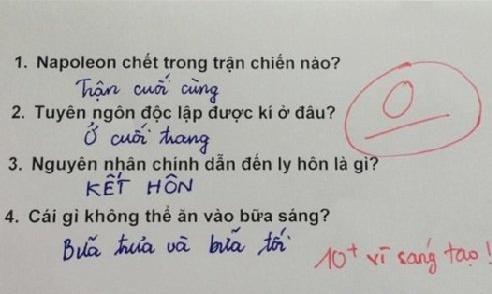 1. Napoleon chết trong trận chiến nào?
Trận cuối cùng
2. Tuyên ngôn độc lập được kí ở đâu?
Ở cuối trang
3. Nguyên nhân chính dẫn đến ly hôn là gì?
KẾT HÔN
4. Cái gì không thể ăn vào bữa sáng?
Bữa trưa và bữa tối
0
10+ vì sáng tạo!